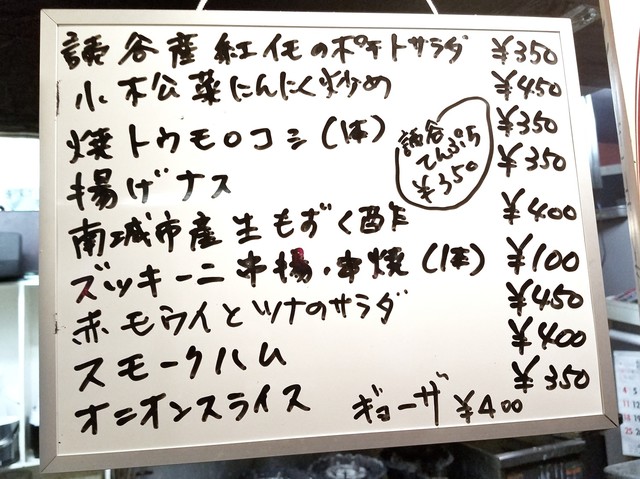 読谷産紅イモのポテトサラダ ¥350
小松菜にんにく炒め ¥450
焼トウモロコシ(1本) ¥350
揚げナス ¥350
読谷
てんぷら
¥350
南城市産生もずく酢 ¥400
ズッキーニ串揚・串焼(1本) ¥100
赤モウイとツナのサラダ ¥450
スモークハム ¥400
オニオンスライス ¥350
ギョーザ ¥400